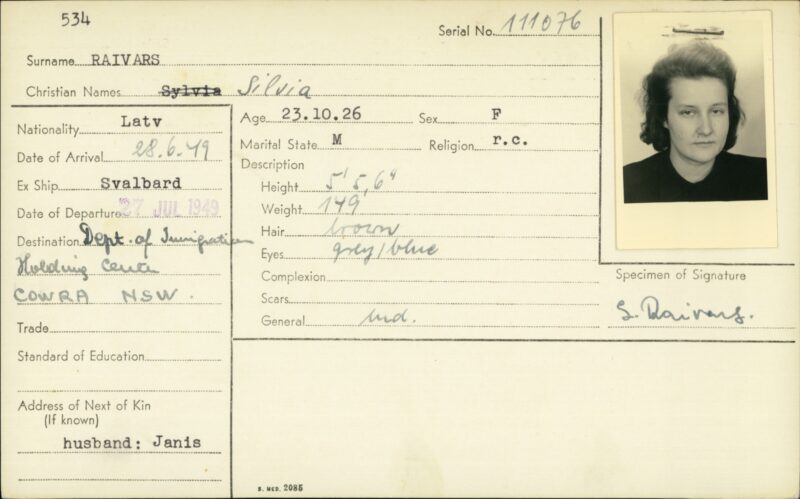 534
Serial No. 111076
Surname RAIVARS
Christian Names Sylvia Silvia
Nationality Latv
Date of Arrival 28.6.49
Ex Ship Svalbard
Date of Departure 27 JUL 1949
Destination Dept. of Immigration
Holding Center
COWRA NSW.
Trade
Standard of Education
Address of Next of Kin
(If known)
husband: Janis
Age 23.10.26 Sex F
Marital State M Religion r.c.
Description
Height 5' 5,6"
Weight 149
Hair brown
Eyes grey/blue
Complexion
Scars
General
Specimen of Signature
S. Raivars.
S. MED. 2085